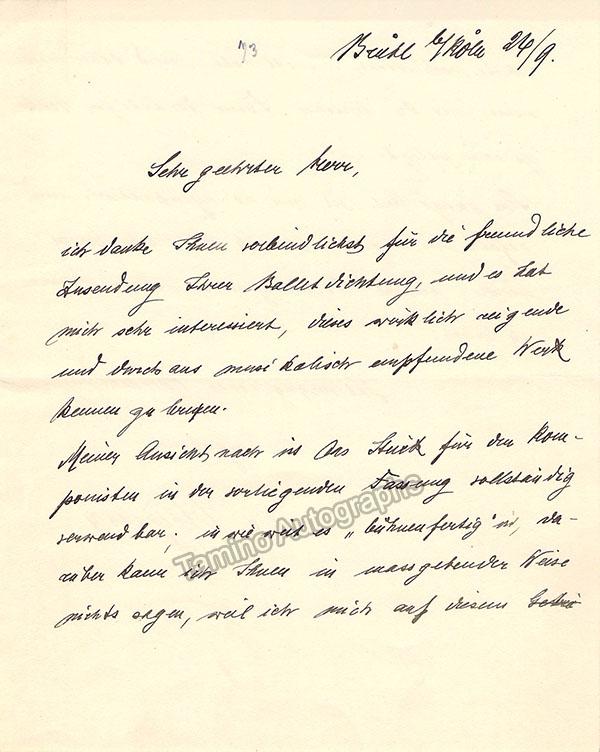 73
Brühl b/Köln 24/9.
Sehr geehrter Herr,
ich danke Ihnen verbindlichst für die freundliche
Zusendung Ihrer Balletdichtung, und es hat
mich sehr interessiert, dieses wirklich reizende
und durchaus musikalisch empfundene Werk
kennen zu lernen.
Meiner Ansicht nach ist das Stück für den Kom-
ponisten in der vorliegenden Fassung vollständig
verwendbar; in wie weit es „bühnenfertig" ist, da-
rüber kann ich Ihnen in massgebender Weise
nichts sagen, weil ich mich auf diesem
Tamino Autographs